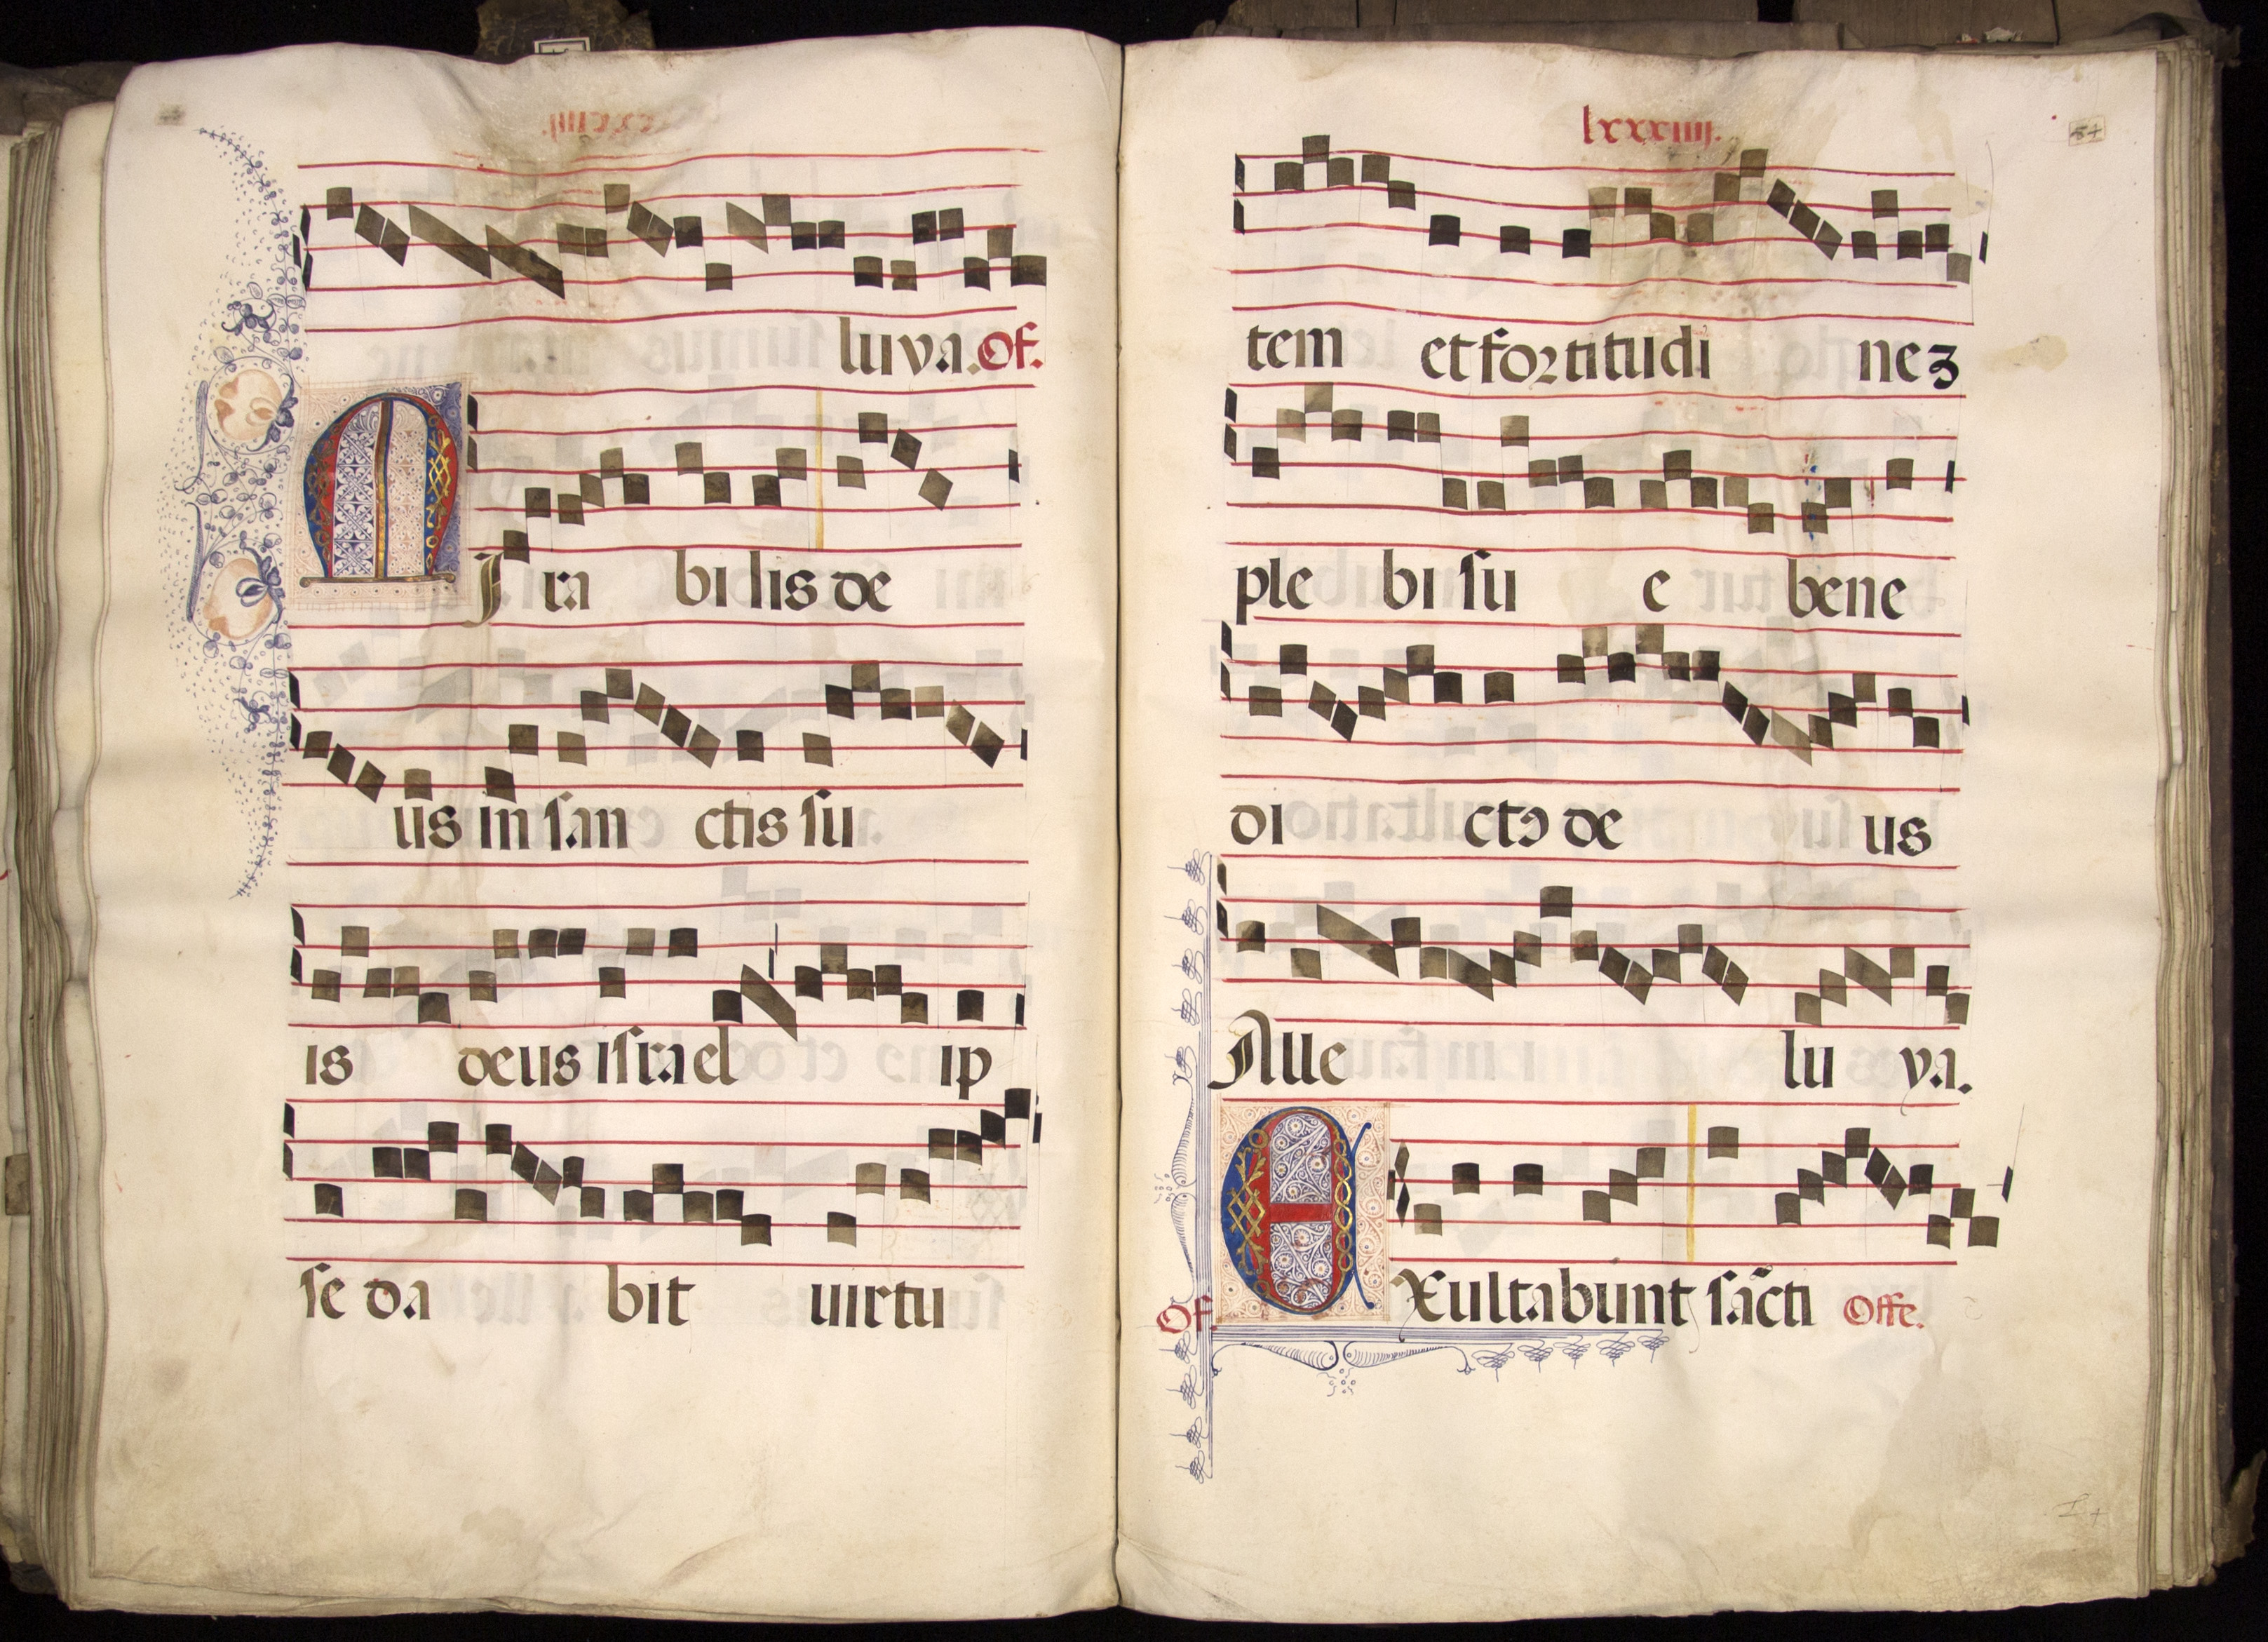 luya. Of.
MIra bilis de
us in san ctis su
is deus israel ip
se da bit uirtu
lxxxiiii.
tem et fortitudi neз
ple bi su e bene
di ctꝰ de us
Alle lu ya.
Of. EXultabunt sãcti Offe.